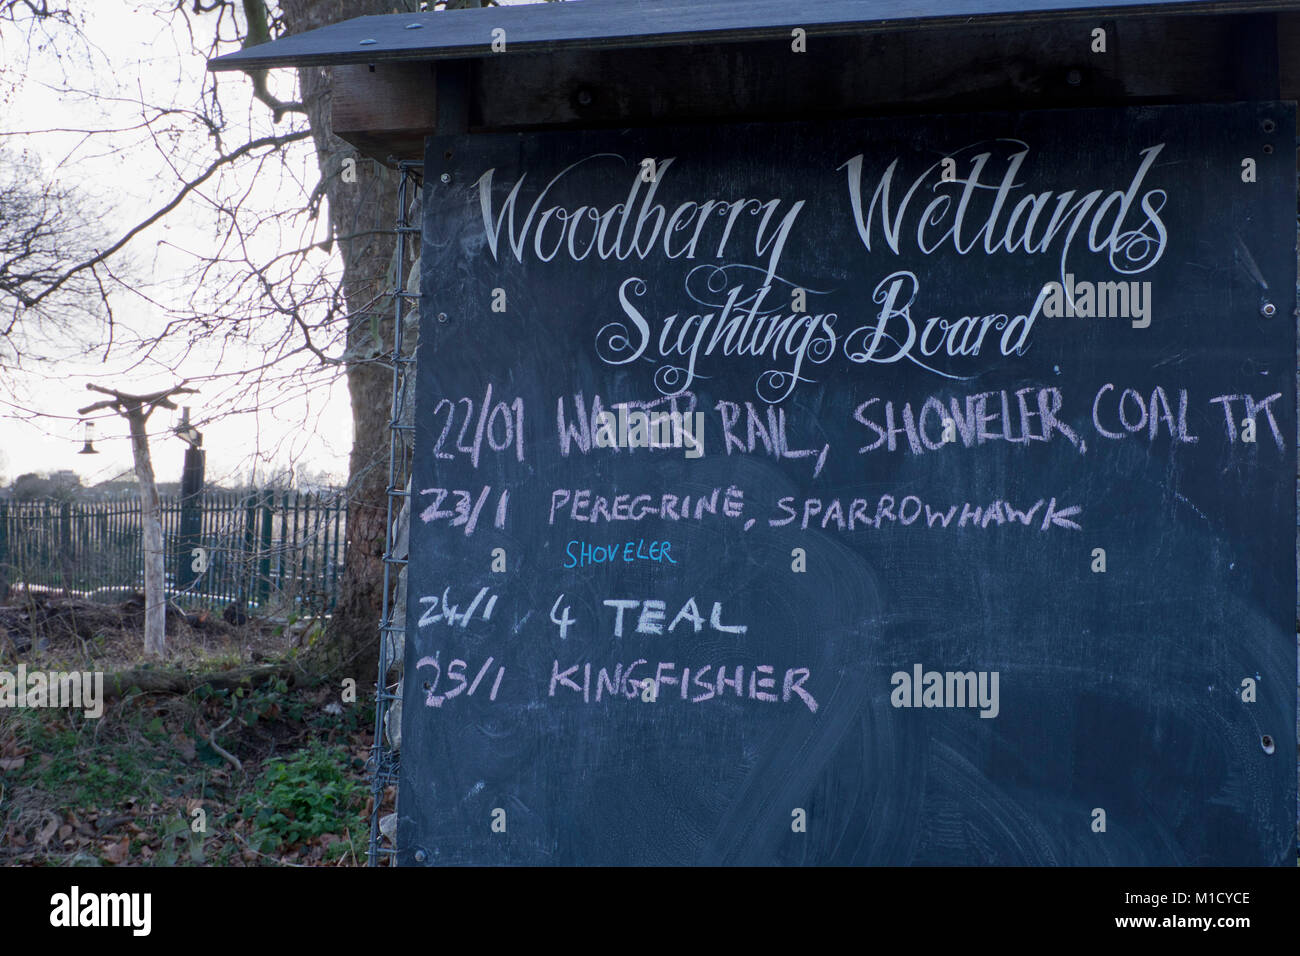 Woodberry Wetlands
Sightings Board
22/01 WATER RAIL, SHOVELER, COAL TIT
23/1 PEREGRINE, SPARROWHAWK
SHOVELER
24/1 4 TEAL
25/1 KINGFISHER
alamy stock photo
alamy
M1CYCE
www.alamy.com